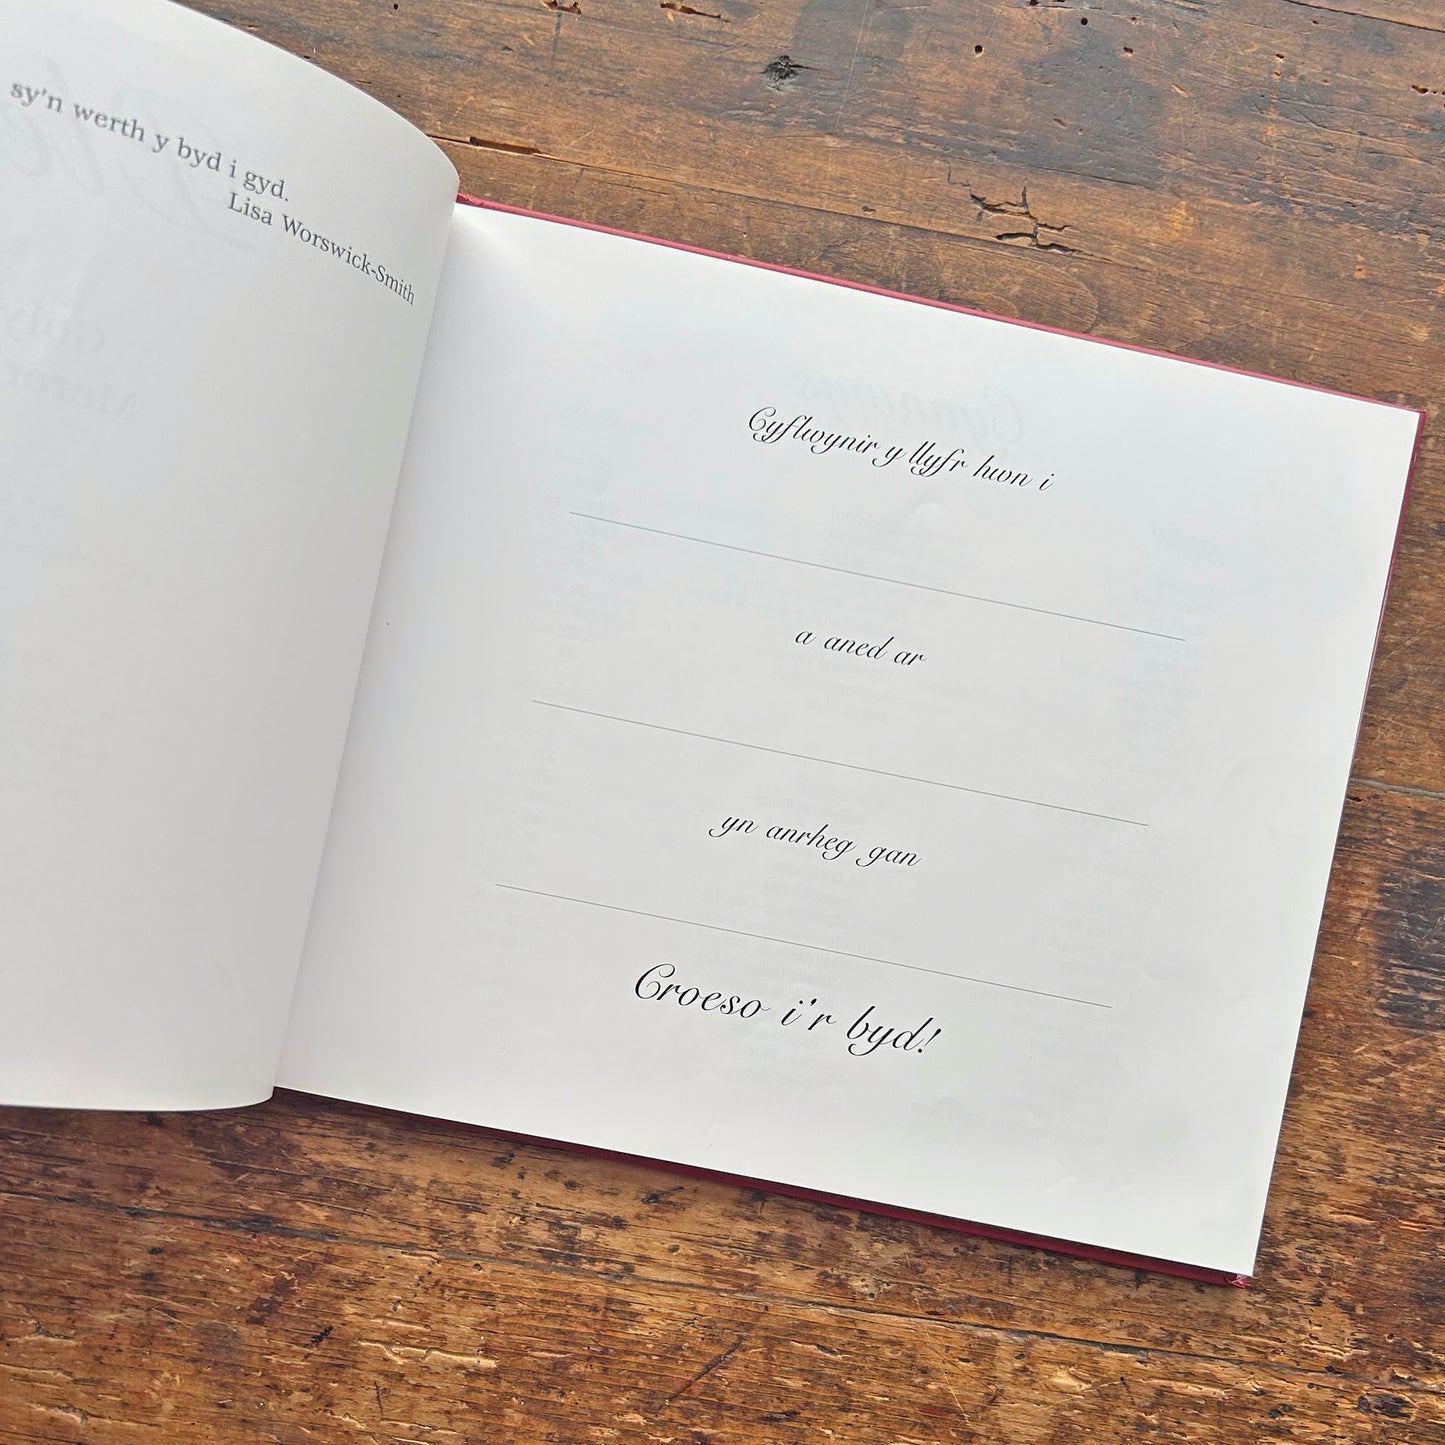 sy'n werth y byd i gyd.
Lisa Worswick-Smith
Cyflwynir y llyfr hwn i
a aned ar
yn anrheg gan
Croeso i'r byd!